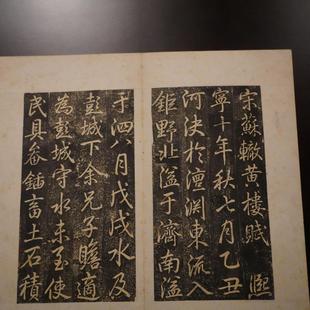 宋蘇轍黄樓賦 熙
寧十年秋七月乙丑
河決於澶渊東流入
鉅野北溢于濟南溢
于泗八月戊戌水及
彭城下余兄子瞻適
為彭城守水未至使
民具畚鍤畜土石積